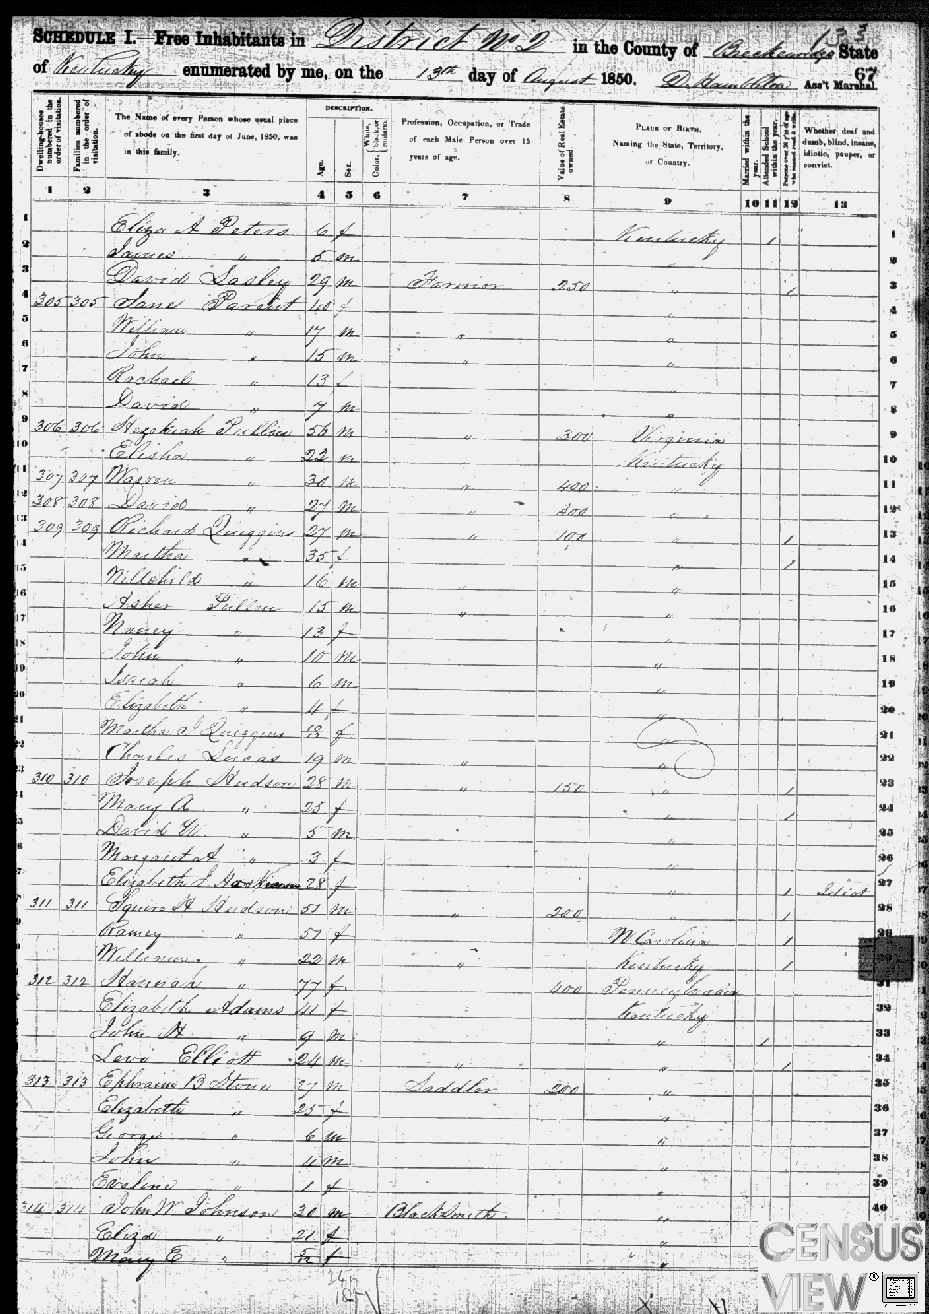 SCHEDULE I. Free Inhabitants in District No 2 in the County of Breckenridge State
of Kentucky enumerated by me, on the 13th day of August 1850. Ass't Marshal.
67
Dwelling-houses numbered in the order of visitation.
Families numbered in the order of visitation.
The Name of every Person whose usual place of abode on the first day of June, 1850, was in this family.
DESCRIPTION.
Age.
Sex.
Color, White, black, or mulatto.
Profession, Occupation, or Trade of each Male Person over 15 years of age.
Value of Real Estate owned
PLACE OF BIRTH, Naming the State, Territory, or Country.
Married within the year.
Attended School within the year.
Persons over 20 y'rs of age who cannot read & write.
Whether deaf and dumb, blind, insane, idiotic, pauper, or convict.
1 2 3 4 5 6 7 8 9 10 11 12 13
1 Eliza A Peters 6 f Kentucky 1 1
2 James " 5 m " 2
3 David 29 m Farmer 250 " 1 3
4 305 305 Jane 40 f " 4
5 William " 17 m " " 5
6 John " 15 m " " 6
7 Rachael " 13 f " 7
8 David " 7 m " 8
9 306 306 Hezekiah Pullin 56 m " 300 Virginia 9
10 Elisha " 22 m Kentucky 10
11 307 307 Warren " 30 m " 400 " 11
12 308 308 David " 27 m " " 12
13 309 309 Richard Quiggins 27 m " 100 " 1 13
14 Martha " 35 f " 1 14
15 " 16 m " " 15
16 Asher Pullin 15 m " " 16
17 Nancy " 13 f " 17
18 John " 10 m " 18
19 Isaiah " 6 m " 19
20 Elizabeth " 4 f " 20
21 Martha J Quiggins f " 21
22 Charles Lucas 19 m " " 22
23 310 310 Joseph Hudson 28 m 150 " 1 23
24 Mary A " 25 f " 1 24
25 David W. " 5 m " 25
26 Margaret A " 3 f " 26
27 Elizabeth J 28 f " 1 Idiot 27
28 311 311 Squire H Hudson 51 m " 200 " 1 28
29 Ramey " 57 f N Carolina 1 29
30 William " 22 m " Kentucky 1 30
31 312 312 Hannah " 77 f 400 Pennsylvania 31
32 Elizabeth Adams 41 f Kentucky 32
33 John H " 9 m " 1 33
34 Levo Elliott 24 m " " 1 34
35 313 313 Ephraim B Stone 27 m Saddler 200 " 35
36 Elizabeth " 25 f " 36
37 George " 6 m " 37
38 John " 4 m " 38
39 Eveline " 1 f " 39
40 314 314 John W Johnson 30 m BlackSmith " 40
Eliza " 21 f "
Mary E " f " "
CENSUS
VIEW®